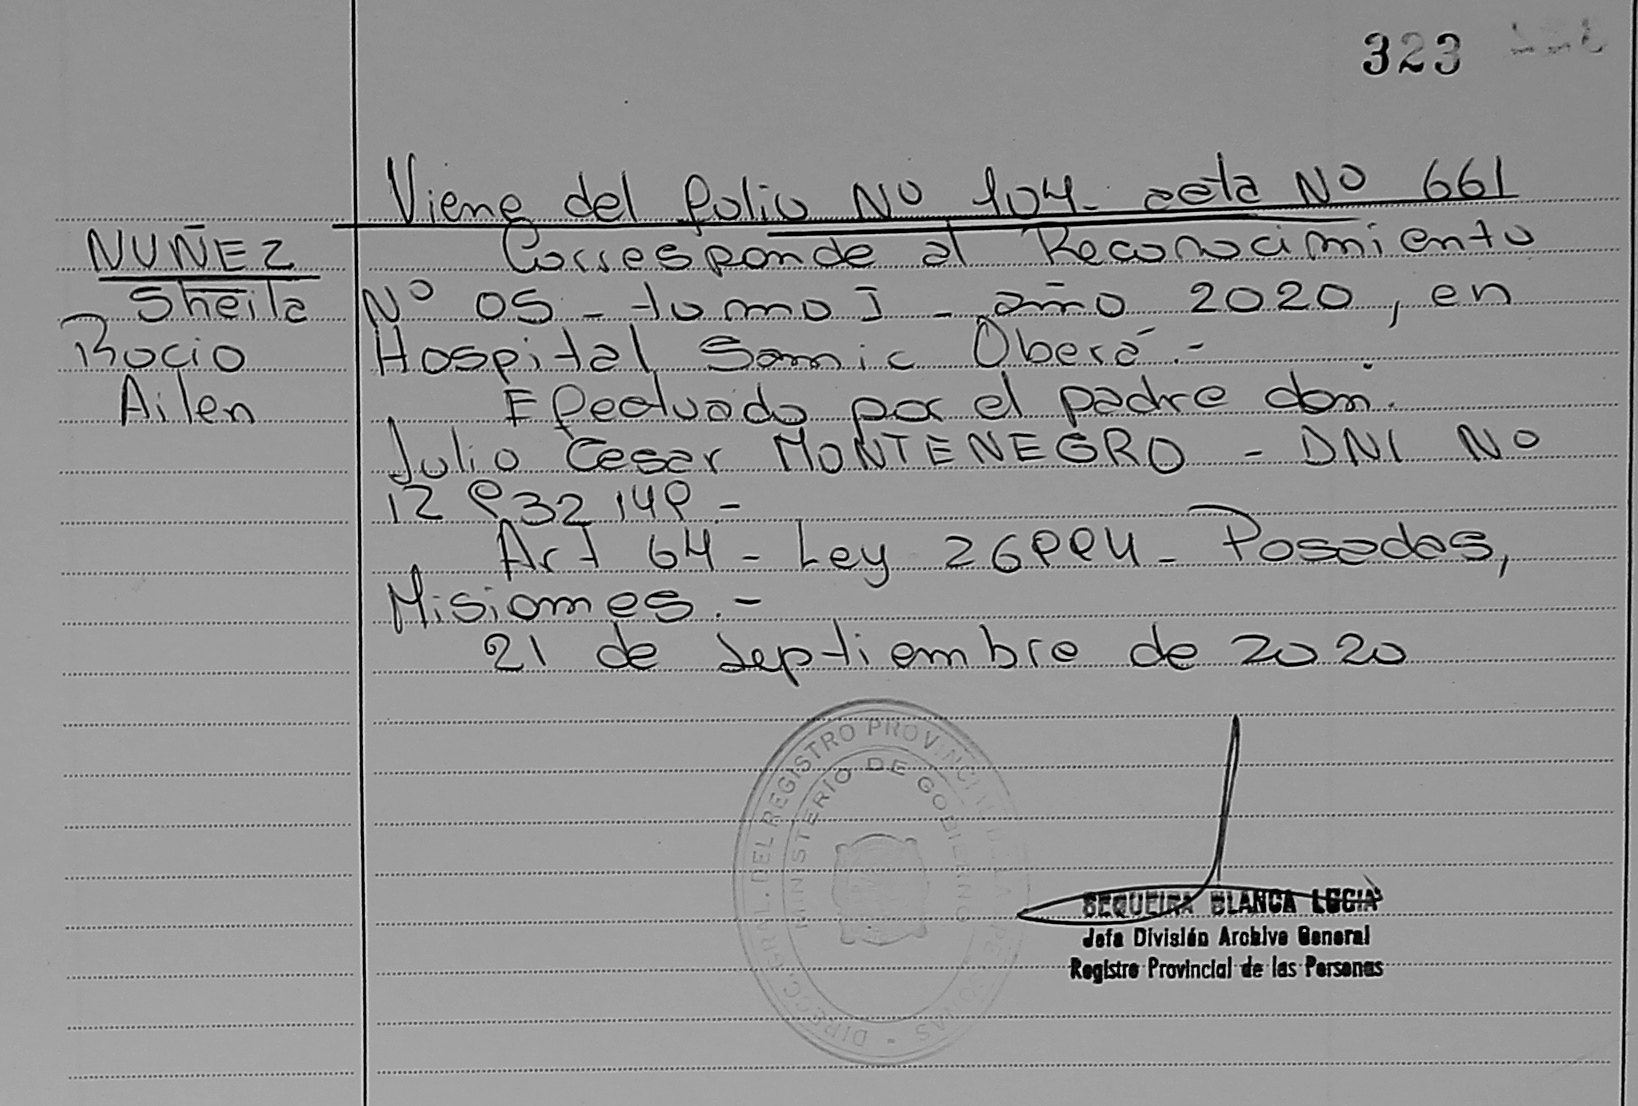 323
Viene del folio Nº 104- acta Nº 661
NUÑEZ
Sheila
Rocio
Ailen
Corresponde al Reconocimiento
Nº 05 - tomo I - año 2020, en
Hospital Samic Oberá.-
Efectuado por el padre don.
Julio Cesar MONTENEGRO - DNI Nº
12 932 149 -
Art 64 - Ley 26994 - Posadas,
Misiones.-
21 de Septiembre de 2020
DIRECC. GRAL. DEL REGISTRO PROVINCIAL DE LAS PERSONAS
MINISTERIO DE GOBIERNO
SEQUEIRA BLANCA LUCIA
Jefa División Archivo General
Registro Provincial de las Personas